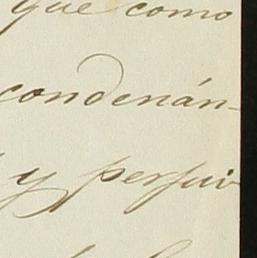 que como
condenán-
y perjui